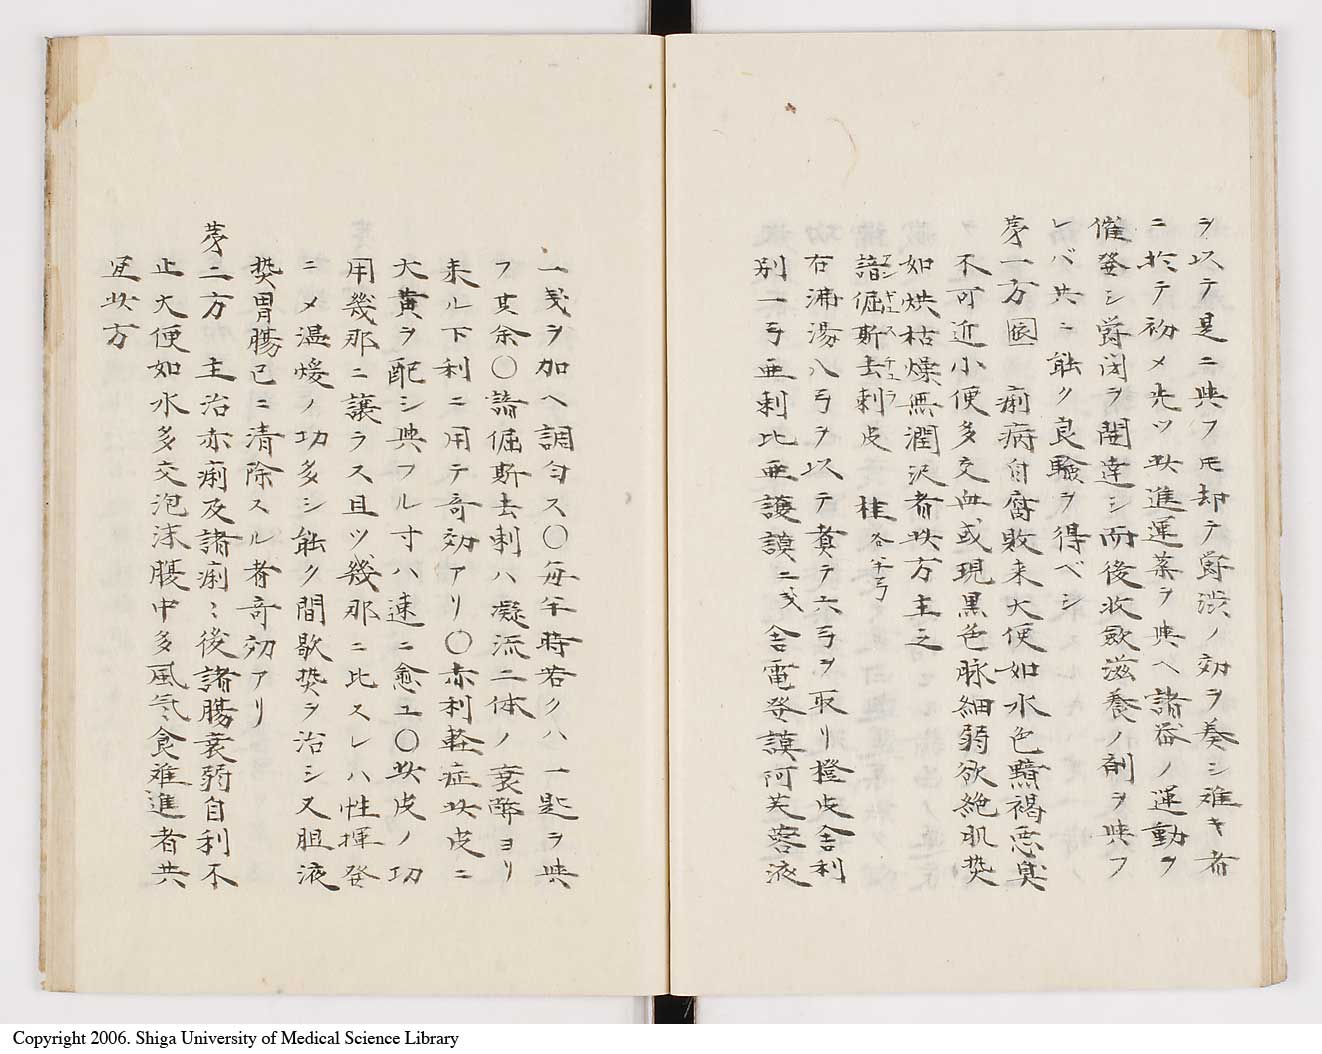 ヲ以テ是ニ與フモ却テ欝渋ノ効ヲ奏シ難キ者
ニ於テ初メ先ツ此進運薬ヲ與ヘ諸器ノ運動ヲ
催發シ欝閉ヲ開達シ而後收斂滋養ノ剤ヲ與フ
レバ共ニ能ク良驗ヲ得ベシ
苐一方 痢病自腐敗来大便如水色黯褐悪臭
不可近小便多交血或現黒色脉細弱欲絶肌熱
如烘枯燥無潤沢者此方主之
諳倔斯去剌皮 桂 各半弓
右沸湯八弓ヲ以テ煮テ六弓ヲ取リ橙皮舎利
別一弓亜剌比亜護謨二戔舎電發謨阿芙蓉液
一戔ヲ加ヘ調匀ス〇毎半時若クハ一匙ヲ與
フ其余〇諳倔斯去剌ハ凝流二体ノ衰弊ヨリ
来ル下利ニ用テ奇効アリ〇赤利軽症此皮ニ
大黄ヲ配シ與フル寸ハ速ニ愈ユ〇此皮ノ功
用幾那ニ譲ラス且ツ幾那ニ比スレハ性揮發
ニメ温煖ノ功多シ能ク間歇熱ヲ治シ又胆液
熱胃腸已ニ清除スル者奇効アリ
苐二方 主治赤痢及諸痢〻後諸腸衰弱自利不
止大便如水多交泡沫腹中多風气食難進者共
宜此方
Copyright 2006. Shiga University of Medical Science Library